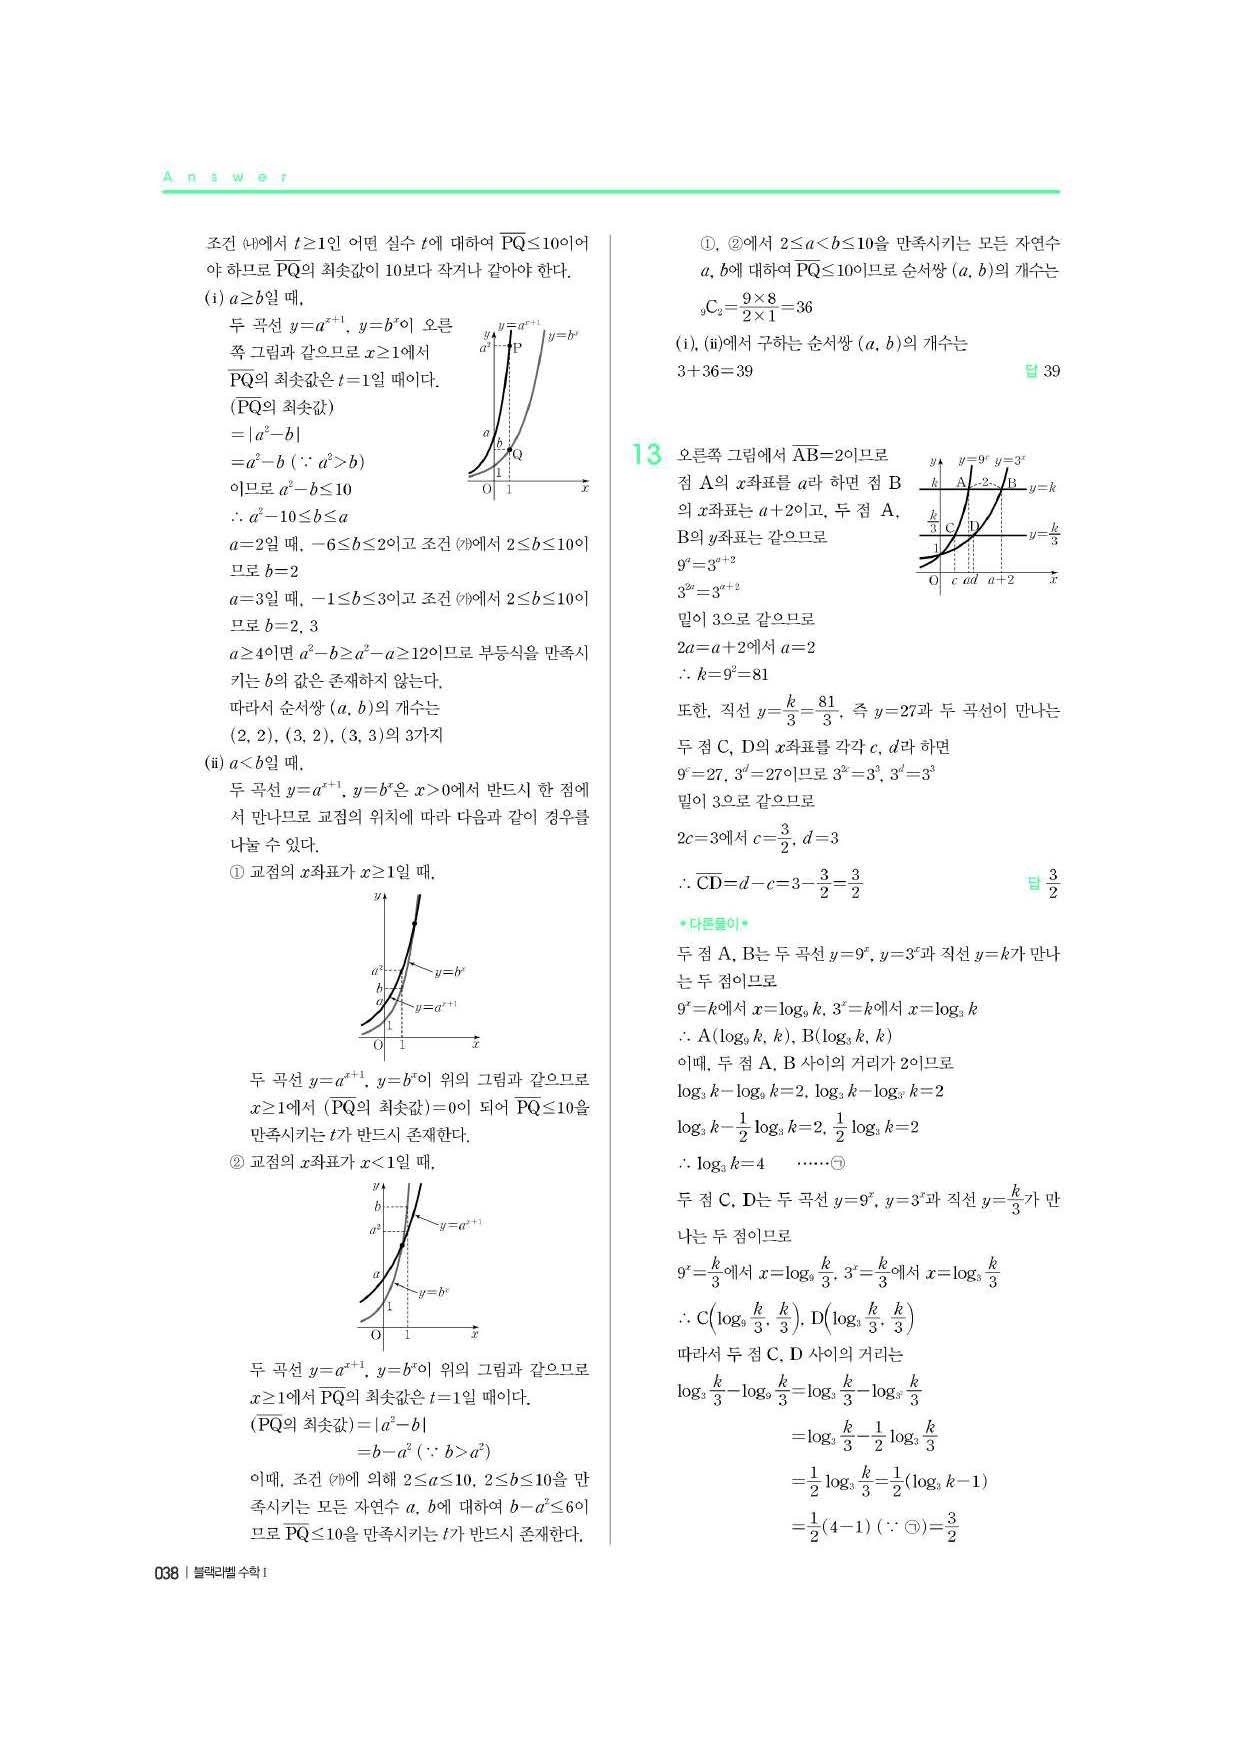 Answer
조건 ㈏에서 t≥1인 어떤 실수 t에 대하여 PQ≤10이어
야 하므로 PQ의 최솟값이 10보다 작거나 같아야 한다.
(i) a≥b일 때,
두 곡선 y=a^{x+1}, y=b^x이 오른
쪽 그림과 같으므로 x≥1에서
PQ의 최솟값은 t=1일 때이다.
(PQ의 최솟값)
=|a²-b|
=a²-b (∵ a²>b)
이므로 a²-b≤10
∴ a²-10≤b≤a
y y=a^{x+1} y=b^x
a² P
a
b Q
1
O 1 x
a=2일 때, -6≤b≤2이고 조건 ㈎에서 2≤b≤10이
므로 b=2
a=3일 때, -1≤b≤3이고 조건 ㈎에서 2≤b≤10이
므로 b=2, 3
a≥4이면 a²-b≥a²-a≥12이므로 부등식을 만족시
키는 b의 값은 존재하지 않는다.
따라서 순서쌍 (a, b)의 개수는
(2, 2), (3, 2), (3, 3)의 3가지
(ii) a<b일 때,
두 곡선 y=a^{x+1}, y=b^x은 x>0에서 반드시 한 점에
서 만나므로 교점의 위치에 따라 다음과 같이 경우를
나눌 수 있다.
① 교점의 x좌표가 x≥1일 때,
y
a² y=b^x
b
a y=a^{x+1}
1
O 1 x
두 곡선 y=a^{x+1}, y=b^x이 위의 그림과 같으므로
x≥1에서 (PQ의 최솟값)=0이 되어 PQ≤10을
만족시키는 t가 반드시 존재한다.
② 교점의 x좌표가 x<1일 때,
y
b
a² y=a^{x+1}
a
y=b^x
1
O 1 x
두 곡선 y=a^{x+1}, y=b^x이 위의 그림과 같으므로
x≥1에서 PQ의 최솟값은 t=1일 때이다.
(PQ의 최솟값)=|a²-b|
=b-a² (∵ b>a²)
이때, 조건 ㈎에 의해 2≤a≤10, 2≤b≤10을 만
족시키는 모든 자연수 a, b에 대하여 b-a²≤6이
므로 PQ≤10을 만족시키는 t가 반드시 존재한다.
①, ②에서 2≤a<b≤10을 만족시키는 모든 자연수
a, b에 대하여 PQ≤10이므로 순서쌍 (a, b)의 개수는
₉C₂=9×8/2×1=36
(i), (ii)에서 구하는 순서쌍 (a, b)의 개수는
3+36=39 답 39
13 오른쪽 그림에서 AB=2이므로
점 A의 x좌표를 a라 하면 점 B
의 x좌표는 a+2이고, 두 점 A,
B의 y좌표는 같으므로
9^a=3^{a+2}
3^{2a}=3^{a+2}
밑이 3으로 같으므로
2a=a+2에서 a=2
∴ k=9²=81
y y=9^x y=3^x
k A 2 B y=k
k/3 C D y=k/3
1
O c a d a+2 x
또한, 직선 y=k/3=81/3, 즉 y=27과 두 곡선이 만나는
두 점 C, D의 x좌표를 각각 c, d라 하면
9^c=27, 3^d=27이므로 3^{2c}=3³, 3^d=3³
밑이 3으로 같으므로
2c=3에서 c=3/2, d=3
∴ CD=d-c=3-3/2=3/2 답 3/2
•다른풀이•
두 점 A, B는 두 곡선 y=9^x, y=3^x과 직선 y=k가 만나
는 두 점이므로
9^x=k에서 x=log₉ k, 3^x=k에서 x=log₃ k
∴ A(log₉ k, k), B(log₃ k, k)
이때, 두 점 A, B 사이의 거리가 2이므로
log₃ k-log₉ k=2, log₃ k-log_{3²} k=2
log₃ k-1/2 log₃ k=2, 1/2 log₃ k=2
∴ log₃ k=4 ……㉠
두 점 C, D는 두 곡선 y=9^x, y=3^x과 직선 y=k/3가 만
나는 두 점이므로
9^x=k/3에서 x=log₉ k/3, 3^x=k/3에서 x=log₃ k/3
∴ C(log₉ k/3, k/3), D(log₃ k/3, k/3)
따라서 두 점 C, D 사이의 거리는
log₃ k/3-log₉ k/3=log₃ k/3-log_{3²} k/3
=log₃ k/3-1/2 log₃ k/3
=1/2 log₃ k/3=1/2(log₃ k-1)
=1/2(4-1) (∵ ㉠)=3/2
038 | 블랙라벨 수학 I